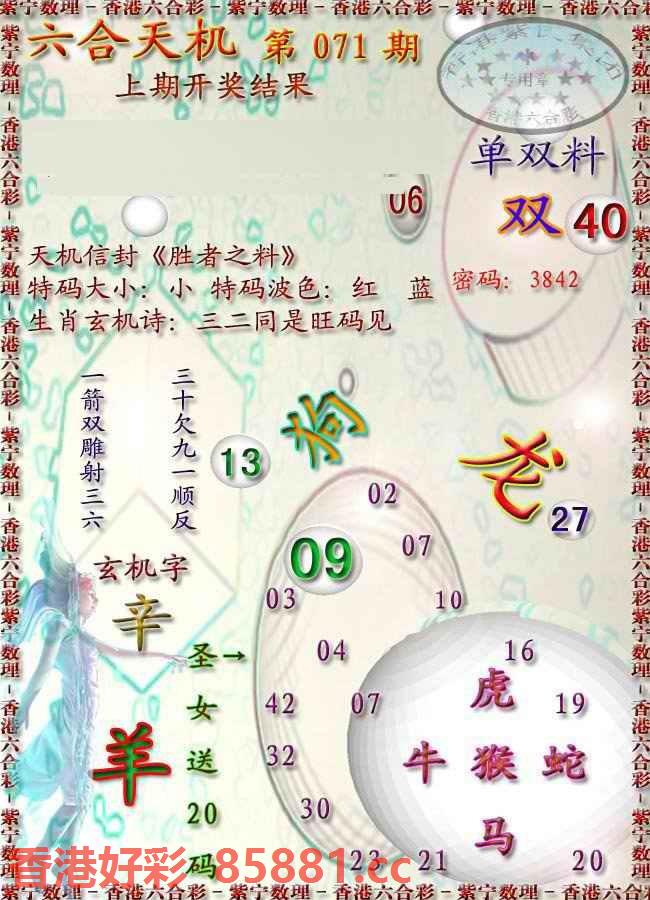 紫宁数理－香港六合彩－紫宁数理－香港六合彩－紫宁数理－香港六合彩
六合天机 第 071 期
上期开奖结果
专用章
香港六合彩
单双料
双 40
06
天机信封《胜者之料》
特码大小：小 特码波色：红 蓝
密码：3842
生肖玄机诗：三二同是旺码见
一箭双雕射三六
三十欠九一顺反
13
狗
龙
27
02
09
07
玄机字
辛
03
10
圣女送20码
→
04
16
虎
42
07
19
羊
32
牛 猴 蛇
30
马
23
21
20
香港好彩 85881.cc
紫宁数理－香港六合彩－紫宁数理－香港六合彩－紫宁数理－香港六合彩